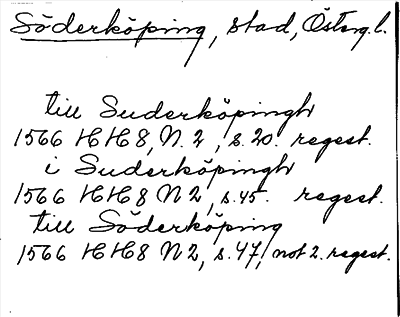 Söderköping, stad, Österg.l.
till Suderköpingh
1566 HH8, N. 2, s. 20. regest.
i Suderköpingh
1566 HH8 N 2, s. 45. regest.
till Söderköping
1566 HH8 N 2, s. 47, not 2. regest.